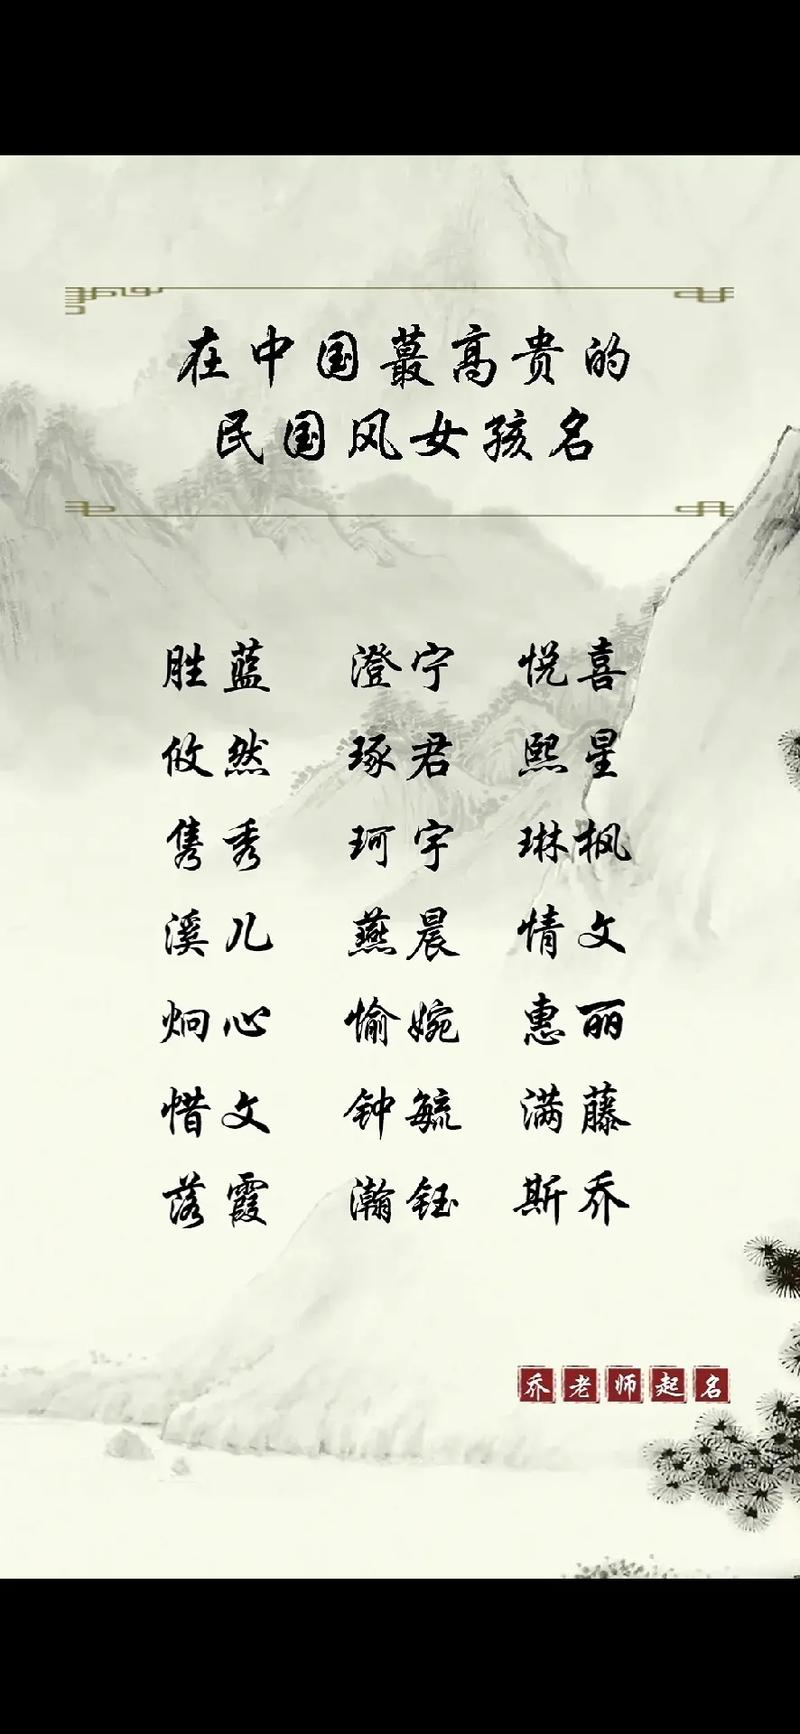 在中国蕞高贵的
民国风女孩名
胜蓝 澄宁 悦喜
攸然 琢君 熙星
隽秀 珂宇 琳枫
溪儿 燕晨 情文
炯心 愉婉 惠丽
惜文 钟毓 满藤
落霞 瀚钰 斯乔
乔老师起名